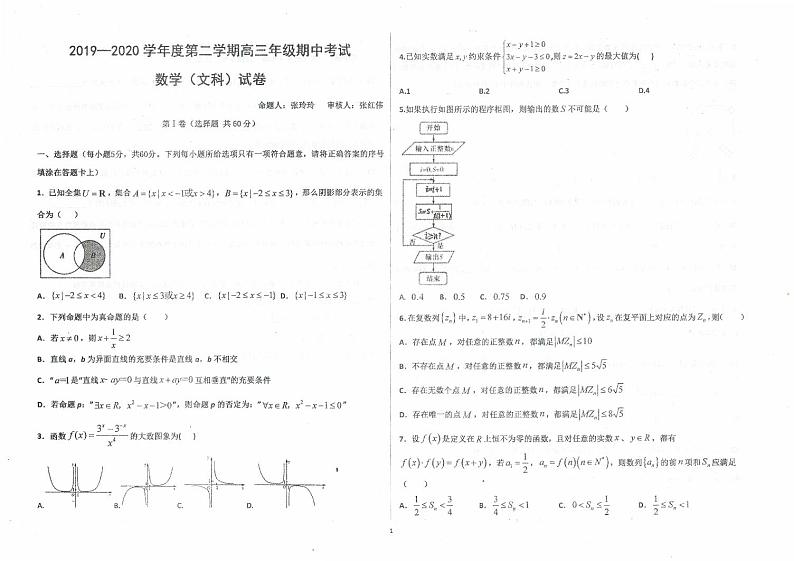 2019—2020 学年度第二学期高三年级期中考试
数学（文科）试卷
命题人：张玲玲 审核人：张红伟
第Ⅰ卷（选择题 共 60 分）
一、选择题（每小题5分，共60分，下列每小题所给选项只有一项符合题意，请将正确答案的序号
填涂在答题卡上）
1．已知全集U = R，集合 A = {x | x < −1或x > 4}，B = {x | −2 ≤ x ≤ 3}，那么阴影部分表示的集
合为（ ）
U
A B
A．{x | −2 ≤ x < 4} B．{x | x ≤ 3或x ≥ 4} C．{x | −2 ≤ x ≤ −1} D．{x | −1 ≤ x ≤ 3}
2．下列命题中为真命题的是（ ）
A．若 x ≠ 0，则 x + 1/x ≥ 2
B．直线 a，b 为异面直线的充要条件是直线 a，b 不相交
C．“a=1是“直线x−ay=0与直线x+ay=0互相垂直”的充要条件
D．若命题 p：“∃x∈R，x² − x − 1 > 0”，则命题 p 的否定为：“∀x∈R，x² − x − 1 ≤ 0”
3．函数 f(x) = (3^x − 3^(−x))/x⁴ 的大致图象为( )
A. B. C. D.
4.已知实数满足 x, y 约束条件 { x − y + 1 ≥ 0
3x − y − 3 ≤ 0 ,则 z = 2x − y 的最大值为( )
x + y − 1 ≥ 0
A.1 B.2 C.3 D.4
5.如果执行如图所示的程序框图，则输出的数 S 不可能是（ ）
开始
输入正整数n
i=0,S=0
i=i+1
S=S+1/(i(i+1))
i≥n?
否 是
输出S
结束
A. 0.4 B. 0.5 C. 0.75 D. 0.9
6．在复数列{zₙ}中，z₁ = 8+16i，zₙ₊₁ = i/2·zₙ(n∈N*)，设 zₙ 在复平面上对应的点为 Zₙ，则（ ）
A．存在点 M，对任意的正整数 n，都满足|MZₙ| ≤ 10
B．不存在点 M，对任意的正整数 n，都满足|MZₙ| ≤ 5√5
C．存在无数个点 M，对任意的正整数 n，都满足|MZₙ| ≤ 6√5
D．存在唯一的点 M，对任意的正整数 n，都满足|MZₙ| ≤ 8√5
7．设 f(x) 是定义在 R 上恒不为零的函数，且对任意的实数 x、y∈R，都有
f(x)·f(y) = f(x+y)，若 a₁ = 1/2，aₙ = f(n)(n∈N*)，则数列{aₙ}的前 n 项和 Sₙ 应满足
（ ）
A．1/2 ≤ Sₙ < 3/4 B．3/4 ≤ Sₙ < 1 C．0 < Sₙ ≤ 1/2 D．1/2 ≤ Sₙ < 1
1